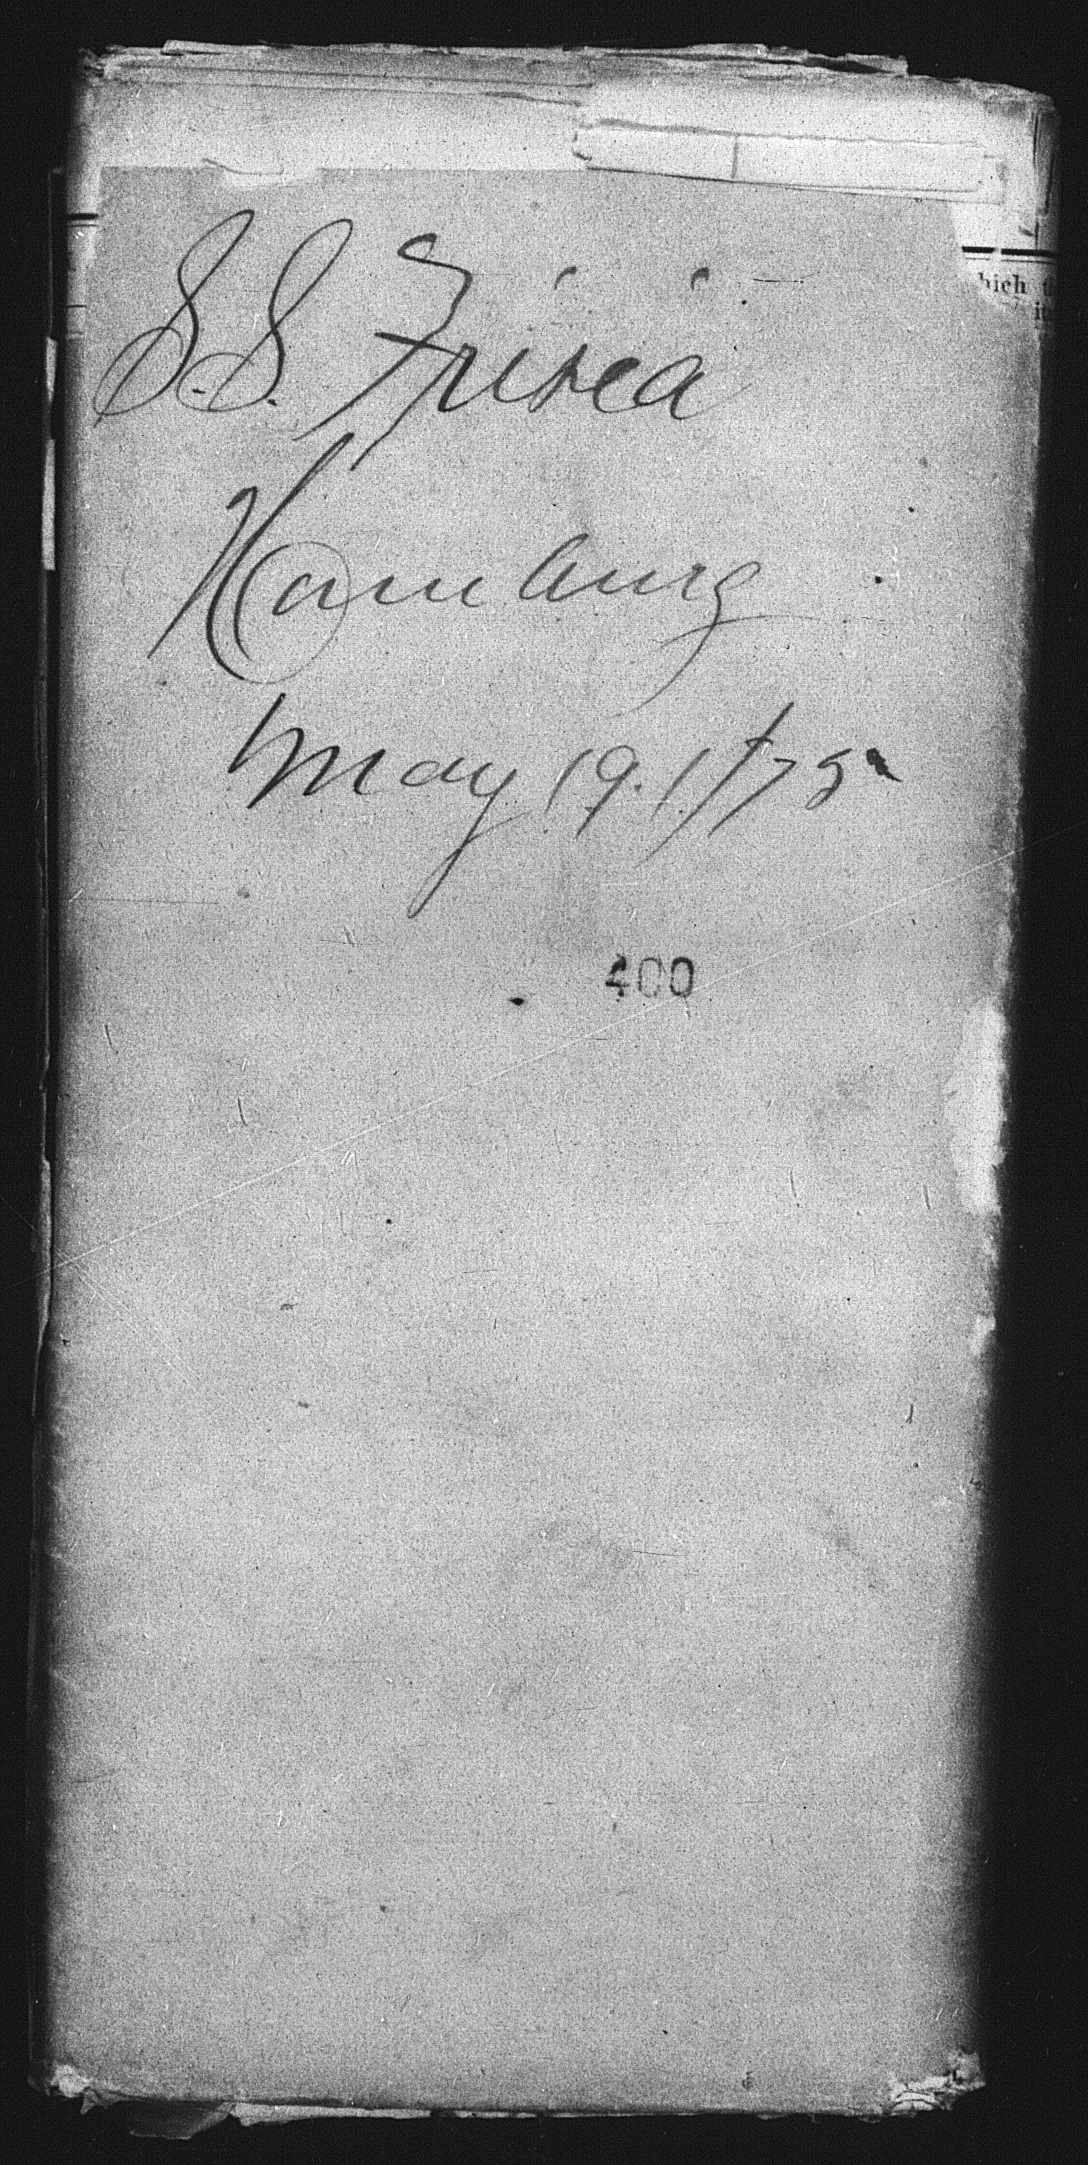 hich
S.S. Frisia
Hamburg
May 19. 1875
400